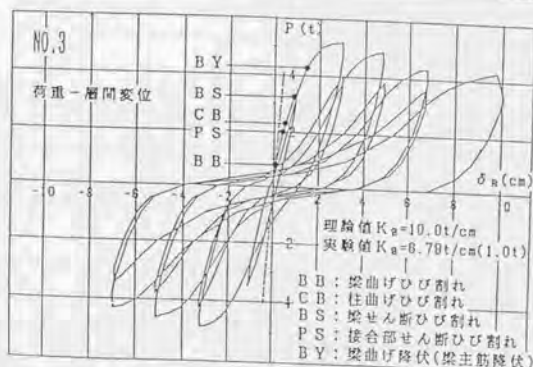 NO.3
P(t)
荷重－層間変位
BY
BS
CB
PS
BB
4
2
-10 -6 -2 2 6 10
δR(cm)
-2
-4
理論値Ke=10.0t/cm
実験値Ke=6.79t/cm(1.0t)
BB：梁曲げひび割れ
CB：柱曲げひび割れ
BS：梁せん断ひび割れ
PS：接合部せん断ひび割れ
BY：梁曲げ降伏(梁主筋降伏)